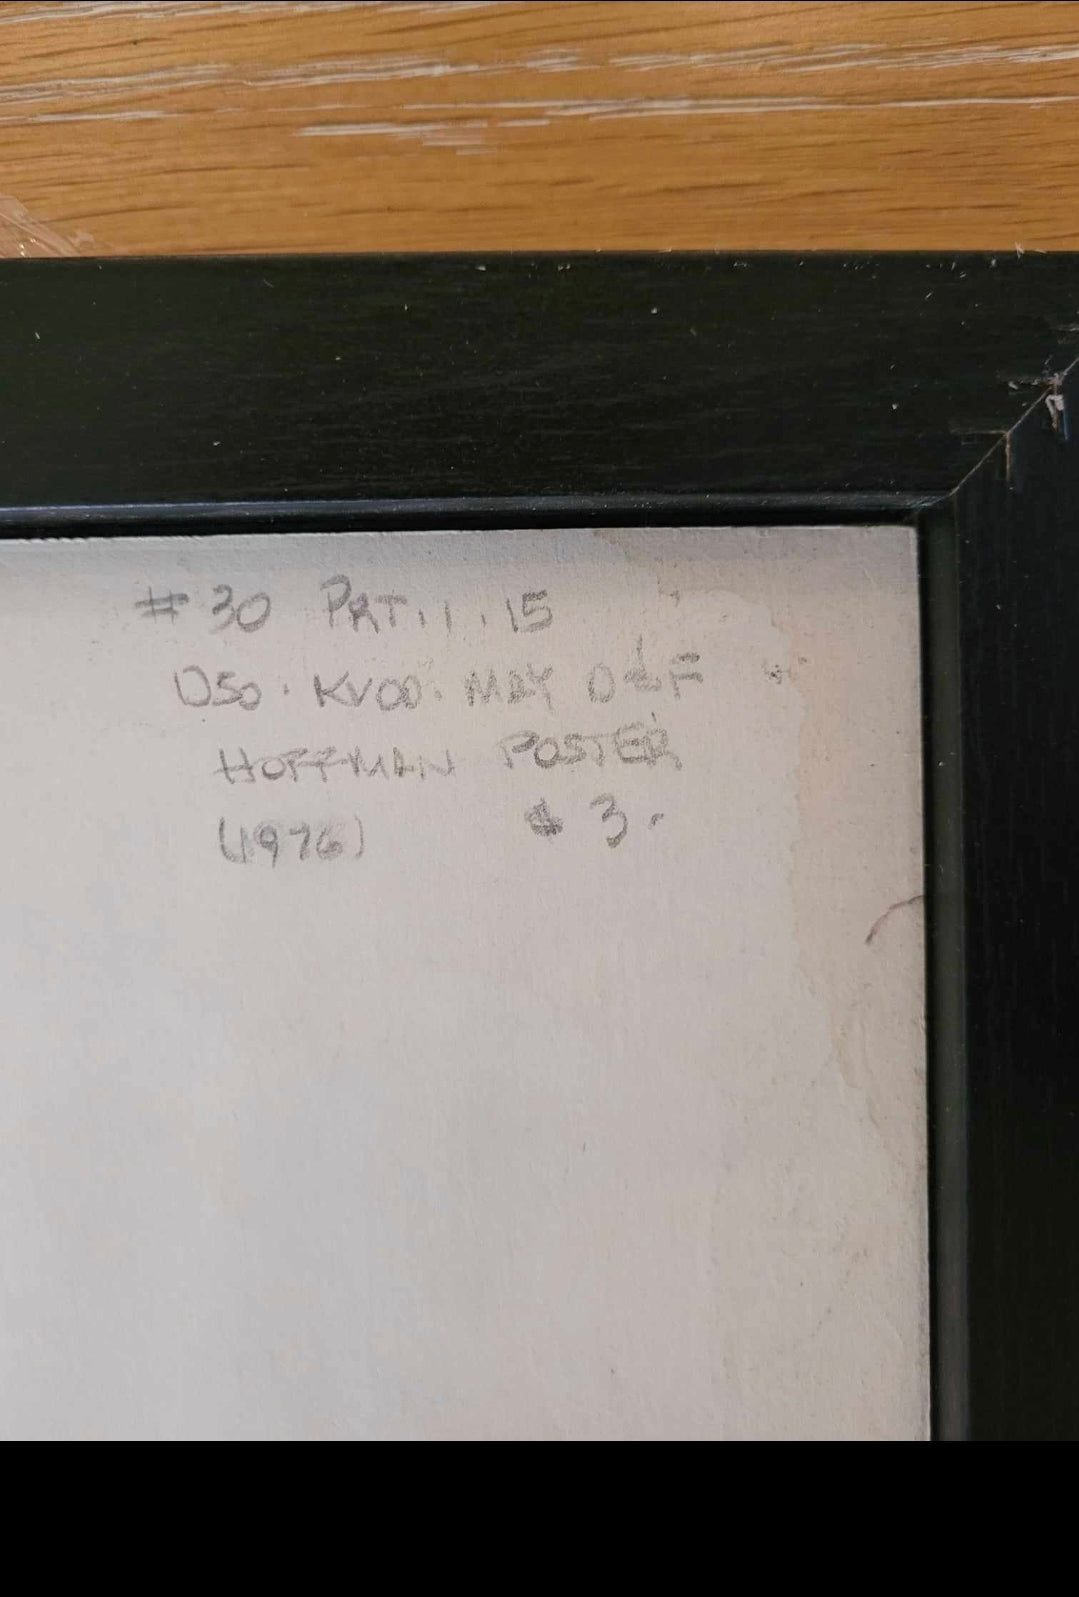 #30 PRT. 1. 15
DSO. KVOD. MAY D&F
HOFFMAN POSTER
(1976) $3.